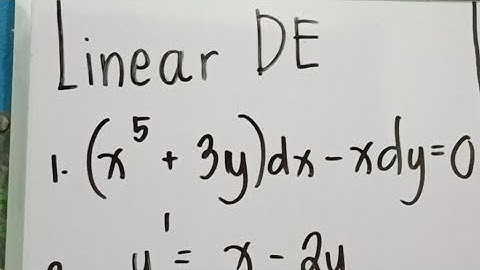 Linear DE
1. (x⁵ + 3y)dx - xdy = 0
y' = x - 2y